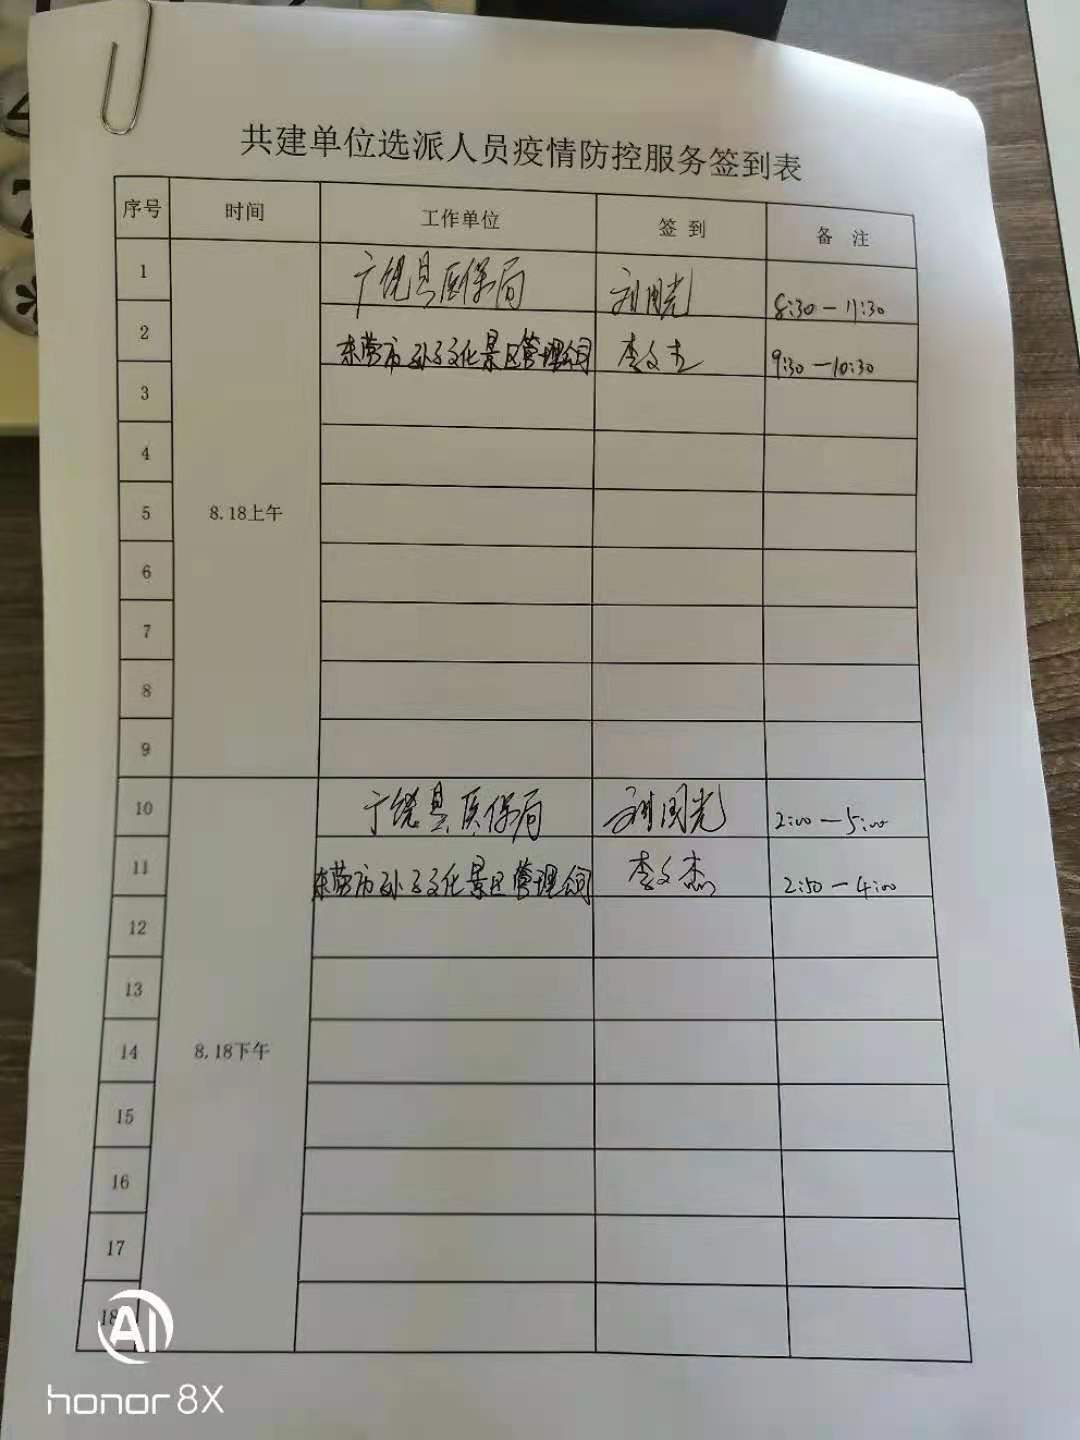 共建单位选派人员疫情防控服务签到表
序号 时间 工作单位 签到 备注
1 广饶县医保局 8:30—11:30
2 东营市孙子文化景区管理公司 李文杰 9:30—10:30
3
4
5 8.18上午
6
7
8
9
10 广饶县医保局 国光 2:00—5:00
11 东营市孙子文化景区管理公司 李文杰 2:50—4:00
12
13
14 8.18下午
15
16
17
18
AI
honor 8X